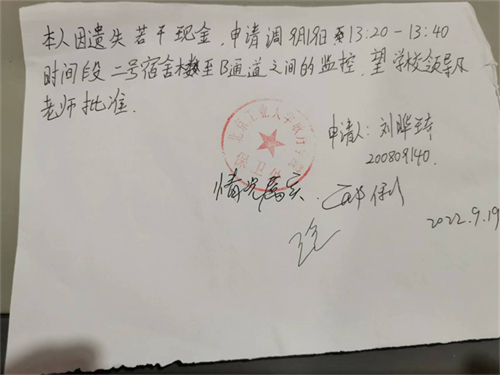 本人因遗失若干现金,申请调9月19日至13:20-13:40
时间段二号宿舍楼至B通道之间的监控,望学校领导及
老师批准.
申请人:刘
200809140.
情况属实.
2022.9.19